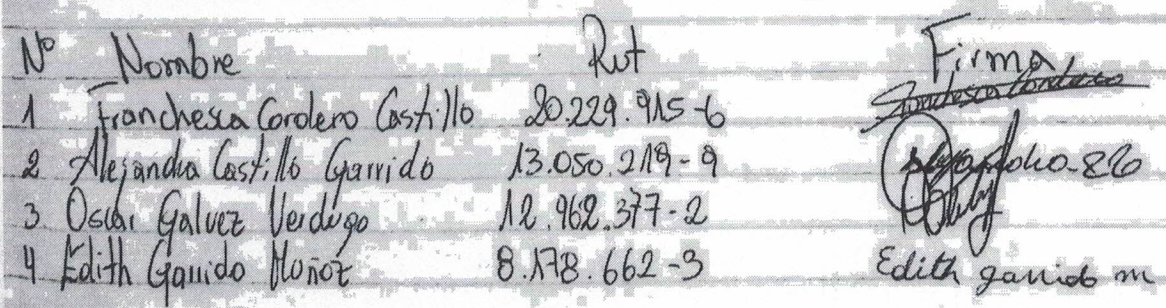 Nº Nombre Rut Firma
1 Franchesca Cordero Castillo 20.229.915-6 Franchesca Cordero
2 Alejandra Castillo Garrido 13.050.219-9
3 Oscar Galvez Verdugo 12.962.377-2
4 Edith Garrido Muñoz 8.178.662-3 Edith garrido m